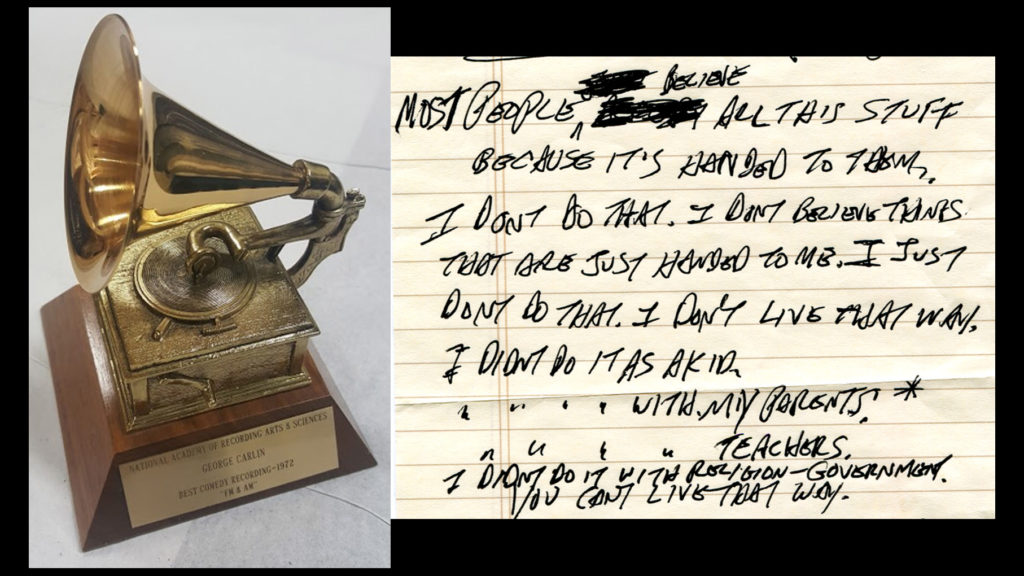 NATIONAL ACADEMY OF RECORDING ARTS & SCIENCES
GEORGE CARLIN
BEST COMEDY RECORDING-1972
"FM & AM"
BELIEVE
MOST PEOPLE ^ ALL THIS STUFF
BECAUSE IT'S HANDED TO THEM.
I DONT DO THAT. I DONT BELIEVE THINGS
THAT ARE JUST HANDED TO ME. I JUST
DONT DO THAT. I DON'T LIVE THAT WAY.
I DIDNT DO IT AS A KID.
" " " " WITH MY PARENTS. *
" " " " TEACHERS.
I DIDNT DO IT WITH RELIGION-GOVERNMENT.
YOU CANT LIVE THAT WAY.